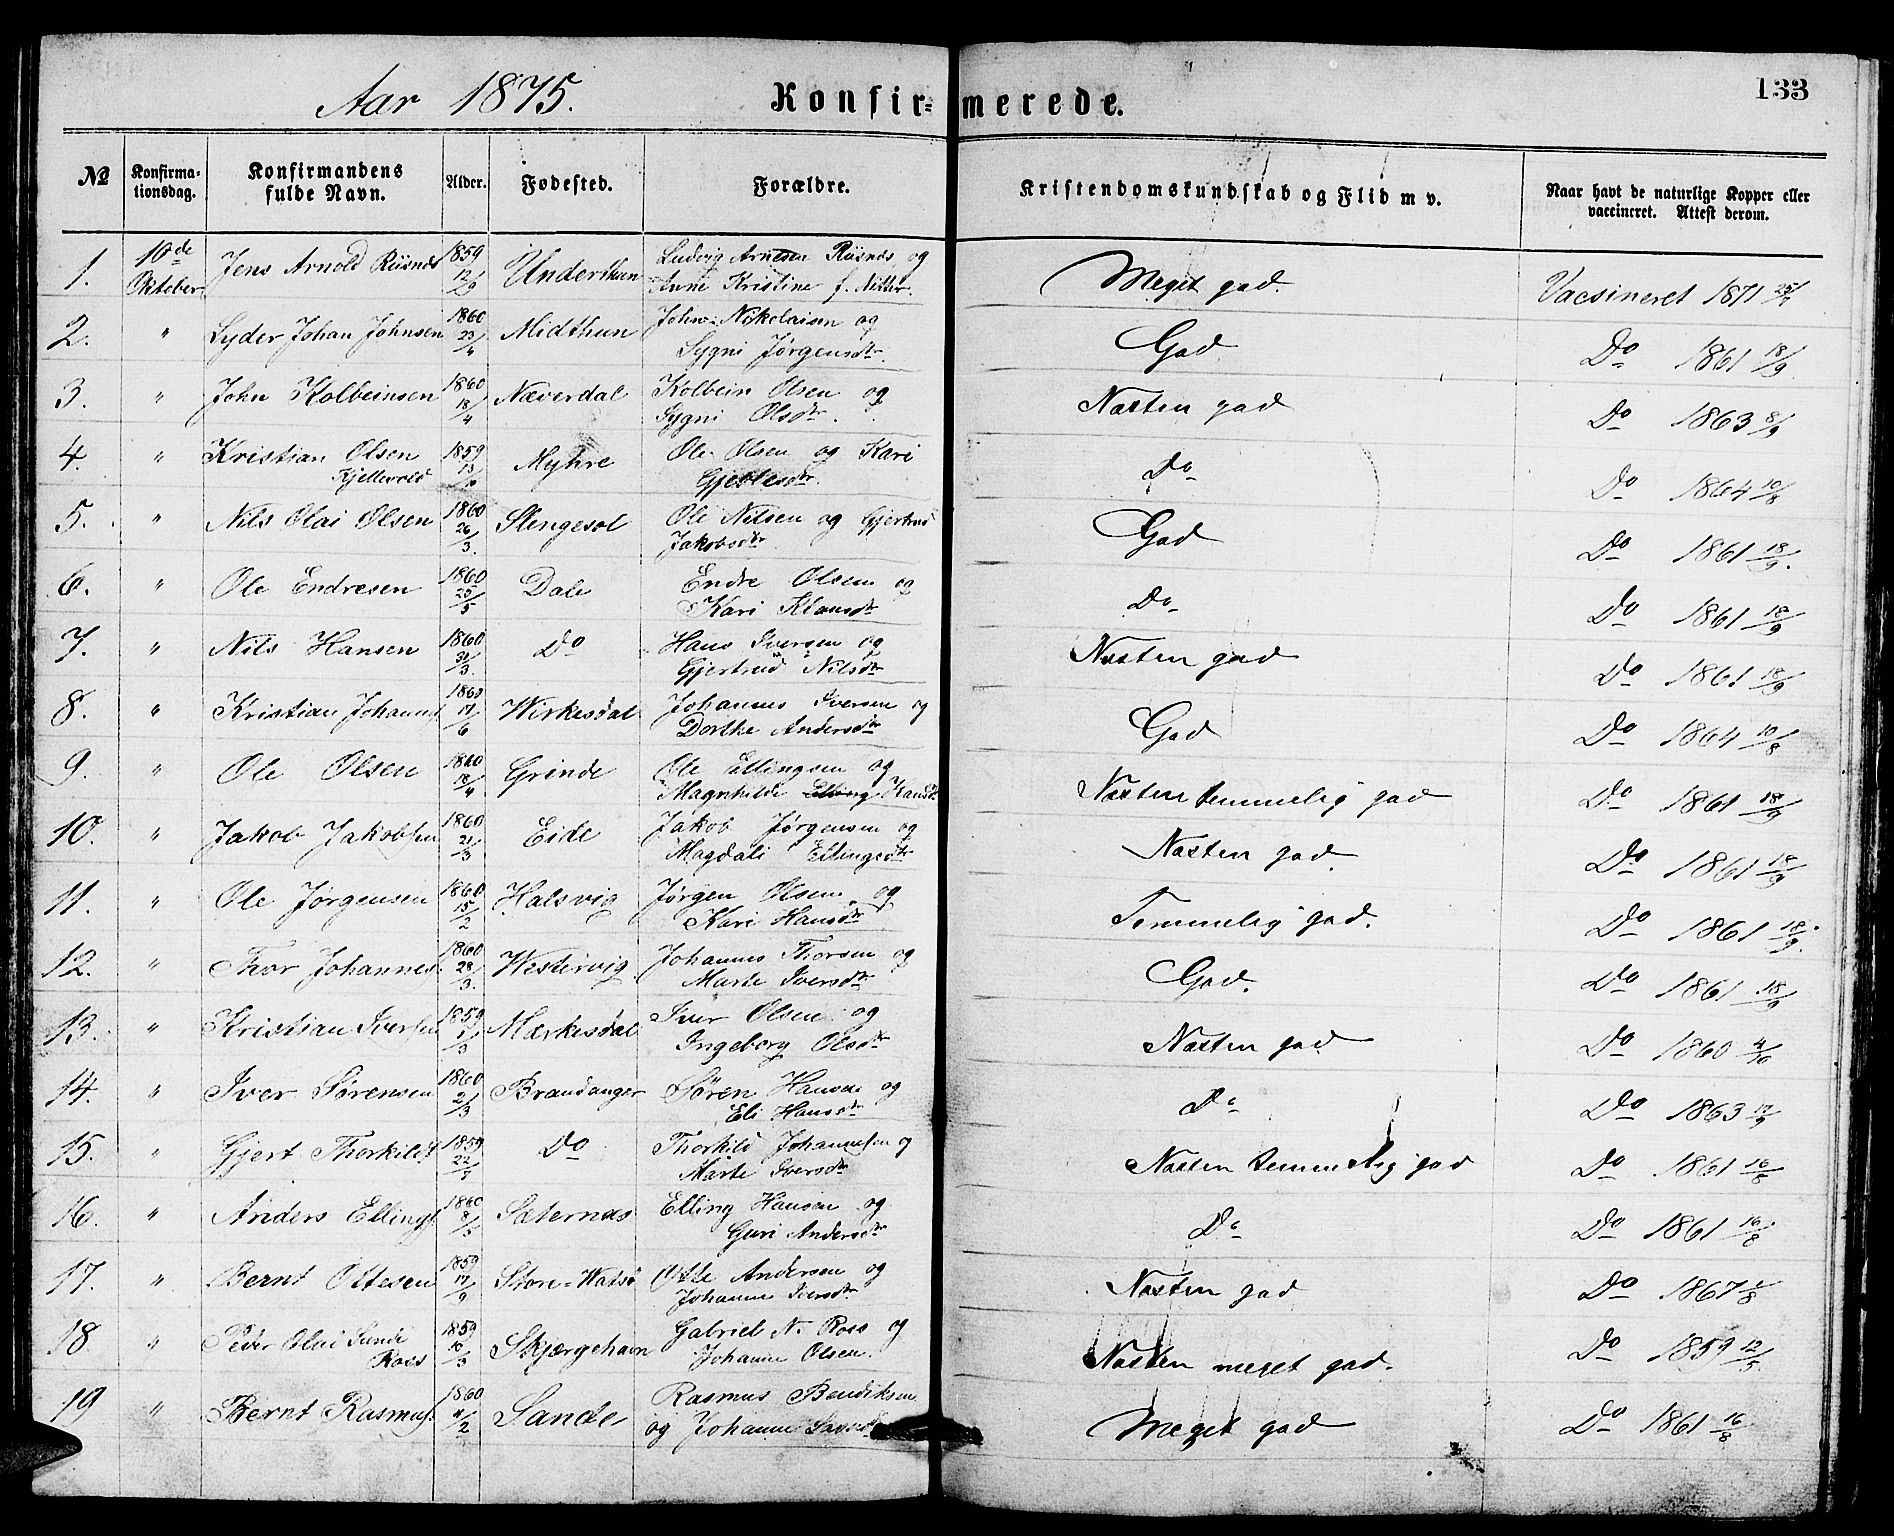 Aar 1875.
Konfir=merede.
133
№
Konfirma-
tionsdag.
Konfirmandens
fulde Navn.
Alder.
Fødested.
Forældre.
Kristendomskundskab og Flid m v.
Naar havt de naturlige Kopper eller
vaccineret. Attest derom.
1. 10de Oktober Jens Arnold Risnes 1859 12/9 Underthun Ludvig Arnesen Risnes og
Anne Kristine f. Meget god. Vacsineret 1871 25/7
2. " Lyder Johan Johnsen 1860 23/4 Midthun John Nikolaisen og
Sygni Jørgensdtr. God Do 1861 18/9
3. " John Kolbeinsen 1860 18/4 Næverdal Kolbein Olsen og
Sygni Olsdtr. Næsten god Do 1863 8/9
4. " Kristian Olsen
Kjellevold 1859 13/10 Myhre Ole Olsen og Kari
Gjertesdtr. Do 1864 10/8
5. " Nils Olai Olsen 1860 26/3. Slengesol Ole Nilsen og Gjertrud
Jakobsdtr. God Do 1861 18/9.
6. " Ole Endresen 1860 25/5 Dale Endre Olsen og
Kari Klausdtr Do Do 1861 18/9
7. " Nils Hansen 1860 30/3. Do Hans Iversen og
Gjertrud Nilsdtr Næsten god Do 1861 18/9
8. " Kristian Johannes 1860 17/6 Wirkesdal Johannes Iversen og
Dorthe Andersdtr God Do 1864 10/8
9. " Ole Olsen 1860 18/4 Grinde Ole Ellingsen og
Magnhilde Hansdtr Næsten temmelig god Do 1861 18/9
10. " Jakob Jakobsen 1860 21/3 Eide Jakob Jørgensen og
Magdali Ellingsdtr Næsten god Do 1861 18/9
11. " Ole Jørgensen 1860 15/2 Halsvig Jørgen Olsen og
Kari Hansdtr Temmelig god. Do 1861 18/9.
12. " Thor Johannes. 1860 28/3. Westervig Johannes Thorsen og
Marte Iversdtr God. Do 1861 18/9
13. " Kristian Iversen 1859 1/3 Mærkesdal Iver Olsen og
Ingeborg Olsdtr Næsten god Do 1860 4/10
14. " Iver Sørensen 1860 2/3 Brandanger Søren Hansen og
Eli Hansdtr Do Do 1863 12/9
15. " Gjert Thorkilds 1859 Do Thorkild Johannesen og
Marte Iversdtr Næsten temmelig god Do 1861 16/8
16. " Anders Ellings 1860 8/5 Saternæs Elling Hansen og
Guri Andersdtr Do Do 1861 16/8
17. " Bernt Ottesen 1859 17/9 Store-Watsø Otte Andersen og
Johanne Iversdtr Næsten god Do 1867 1/8
18. " Peder Olai Sunde
Roos 1859 10/3 Skjærgehavn Gabriel N. Roos og
Johanne Olsen. Næsten meget god. Do 1859 12/5.
19 " Bernt Rasmus. 1860 11/2 Sande Rasmus Bendiksen
og Johanne Meget god Do 1861 16/8